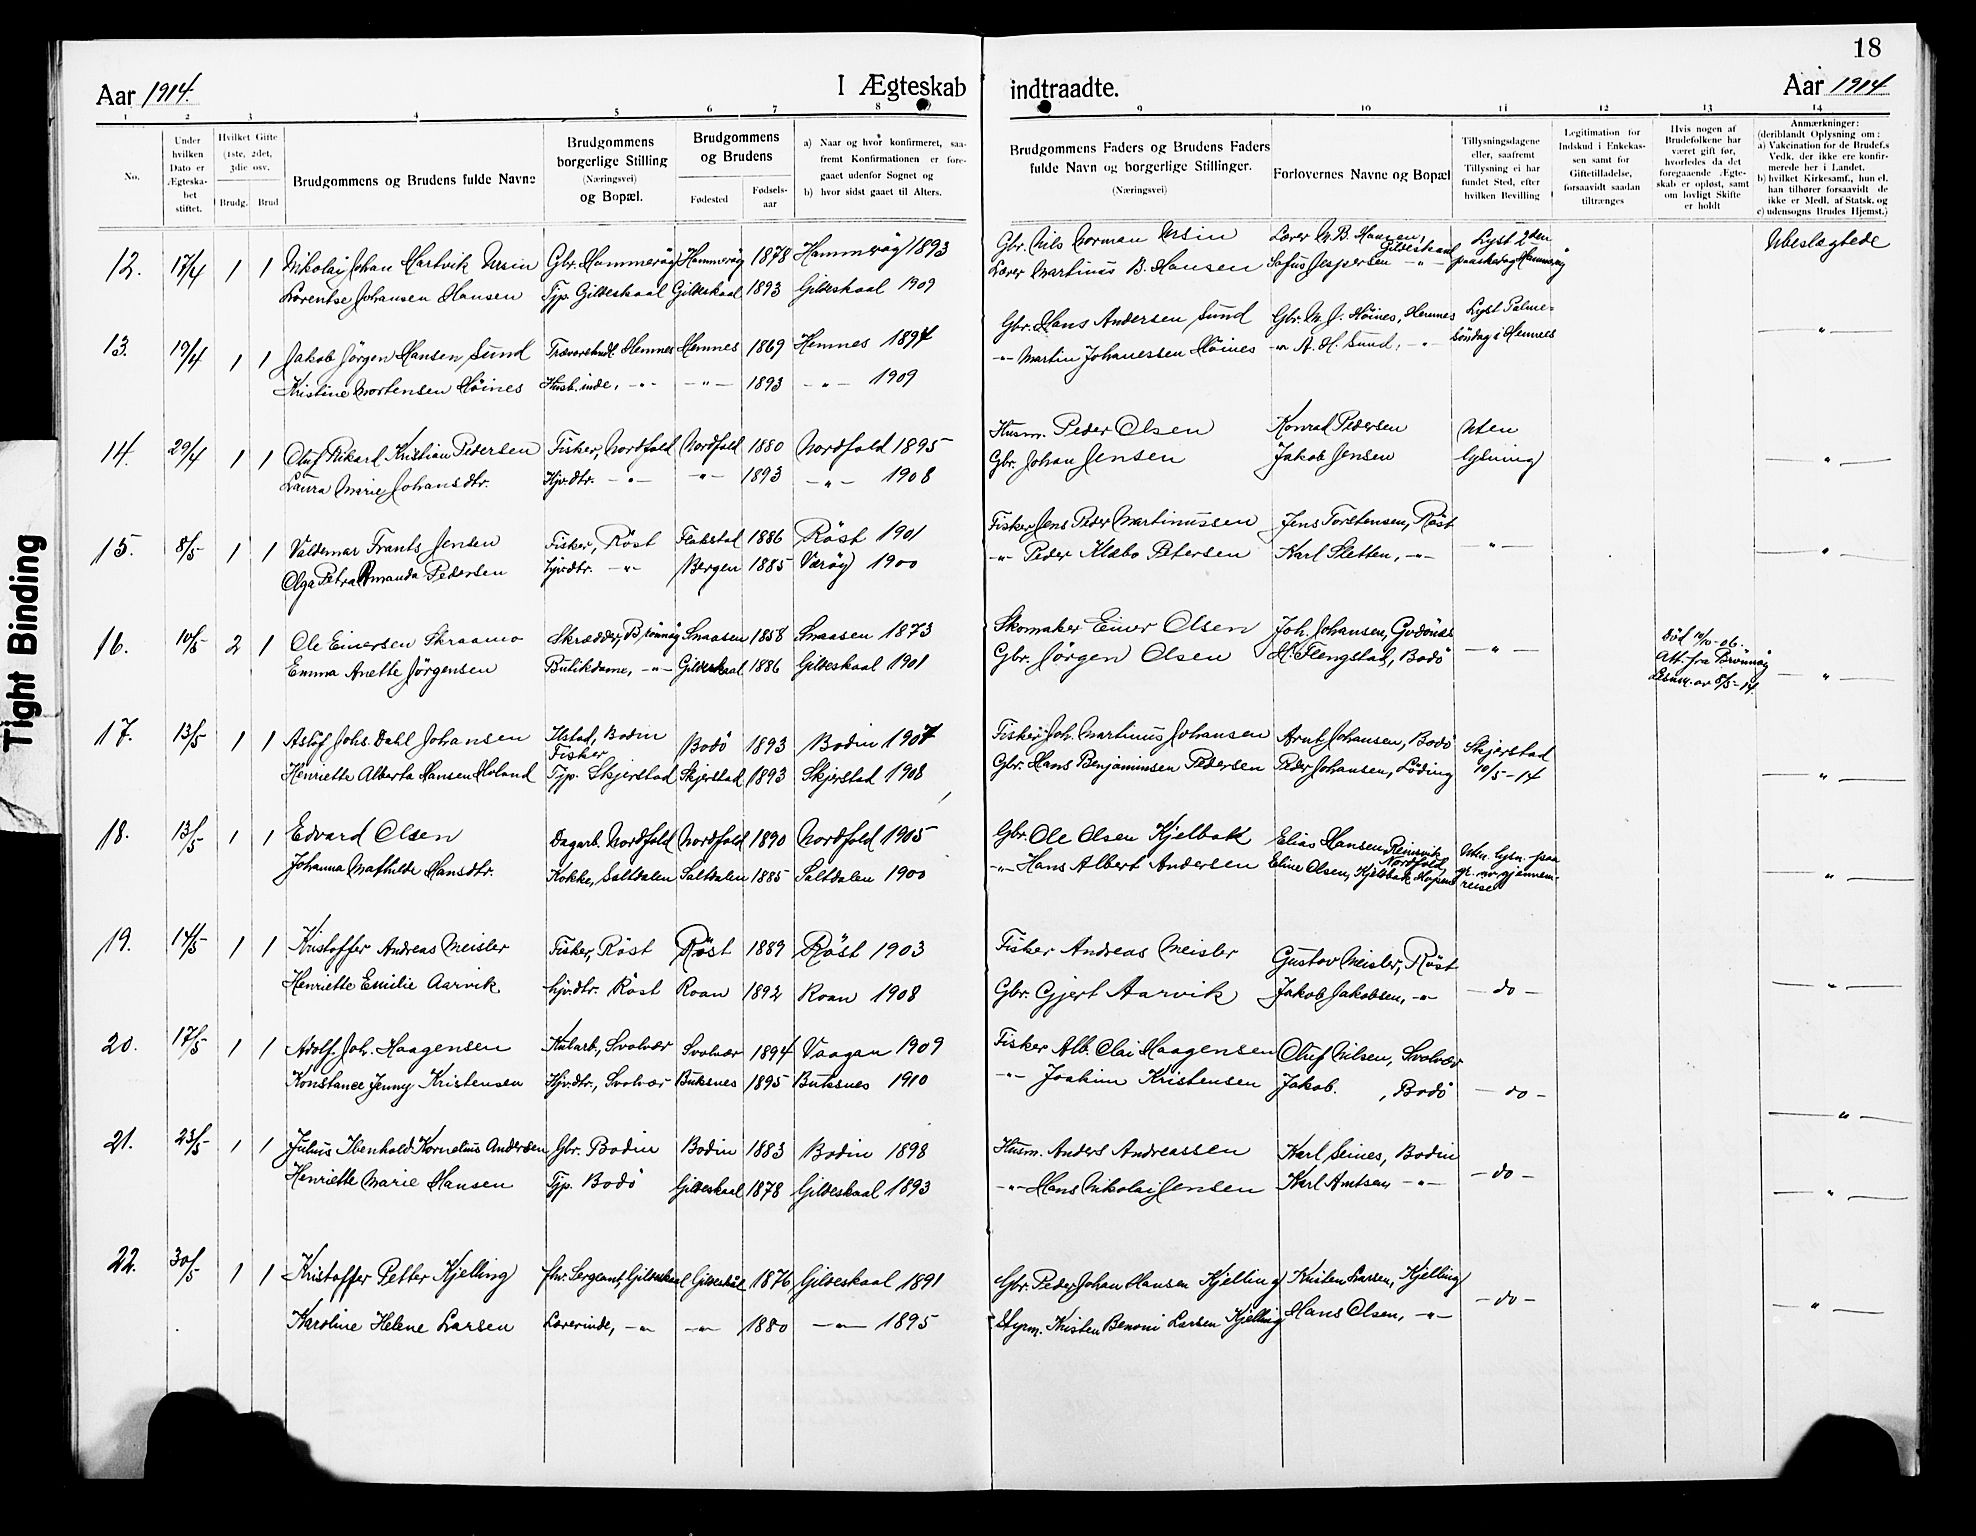 18
Aar 1914. I Ægteskab indtraadte. Aar 1914
1 2 3 4 5 6 7 8 9 10 11 12 13 14
No.
Under hvilken Dato er Ægteska-bet stiftet.
Hvilket Gifte (1ste, 2det, 3die osv.
Brudg. Brud
Brudgommens og Brudens fulde Navne
Brudgommens borgerlige Stilling (Næringsvei) og Bopæl.
Brudgommens og Brudens
Fødested
Fødsels-aar
a) Naar og hvor konfirmeret, saa-fremt Konfirmationen er fore-gaaet udenfor Sognet og
b) hvor sidst gaaet til Alters.
Brudgommens Faders og Brudens Faders fulde Navn og borgerlige Stillinger. (Næringsvei)
Forlovernes Navne og Bopæl
Tillysningsdagene eller, saafremt Tillysning ei har fundet Sted, efter hvilken Bevilling
Legitimation for Indskud i Enkekas-sen samt for Giftetilladelse, forsaavidt saadan tiltrænges
Hvis nogen af Brudefolkene har været gift før, hvorledes da det foregaaende Ægte-skab er opløst, samt om lovligt Skifte er holdt
Anmærkninger: (deriblandt Oplysning om: a) Vakcination for de Brudef.s Vedk. der ikke ere konfir-merede her i Landet. b) hvilket Kirkesamf., hun el. han tilhører forsaavidt de ikke er Medl. af Statsk. og c) udensogns Brudes Hjemst.)
12. 17/4 1 1 Nikolaj Johan Hartvik Ursin Gbr. Hammerøy Hammerøy 1878 Hammerøy 1893 Gbr. Nils Norman Ursin Lærer M. B. Hansen, Gildeskaal Lyst 2den Ubeslægtede
Lorentse Johansen Hansen Tjp. Gildeskaal Gildeskaal 1893 Gildeskaal 1909 Lærer Martinus B. Hansen Sofus Jespersen -"- paaskedag Hammerøy
13. 19/4 1 1 Jakob Jörgen Hansen Sund Trævarehndl. Hemnes Hemnes 1869 Hemnes 1894 Gbr. Hans Andersen Sund Gbr. M. J. Höines, Hemnes Lyst Palme- -"-
Kristine Mortensen Höines Husb.inde, -"- -"- 1893 -"- 1909 -"- Martin Johanessen Höines -"- A. H. Sund, -"- söndag i Hemnes
14. 29/4 1 1 Oluf Rikard Kristian Pedersen Fisker, Nordfold Nordfold 1880 Nordfold 1895 Husm. Peder Olsen Konrad Pedersen Uten -"-
Laura Marie Johansdtr. Hjv.dtr. -"- -"- 1893 -"- 1908 Gbr. Johan Jensen Jakob Jensen lysning
15. 8/5 1 1 Valdemar Frants Jensen Fisker, Röst Flakstad 1886 Röst 1901 Fisker Jens Peder Martinussen Jens Torstensen, Röst -"- -"-
Olga Petra Amanda Pedersen Hjv.dtr. -"- Bergen 1885 Værøy 1900 -"- Peder Klæbo Petersen Karl Sletten, -"-
16. 10/5 2 1 Ole Einersen Skraamo Skrædder, Brönnöy Snaasen 1858 Snaasen 1873 Skomaker Einer Olsen Joh. Johansen, Godönes -"- Död 12/10-06. -"-
Emma Anette Jörgensen Butikdame, -"- Gildeskaal 1886 Gildeskaal 1901 Gbr. Jörgen Olsen H. Flengstad, Bodö Att. fra Brönnöy
av 8/5-14
17. 13/5 1 1 Astöf Johs. Dahl Johansen Ilstad, Bodin Fisker Bodö 1893 Bodin 1907 Fisker Joh. Martinus Johansen Arnt Johansen, Bodö Skjerstad -"-
Henriette Alberta Hansen Moland Tjp. Skjerstad Skjerstad 1893 Skjerstad 1908 Gbr. Hans Benjaminsen Pedersen Peder Johansen, Löding 10/5-14
18. 13/5 1 1 Edvard Olsen Dagarb. Nordfold Nordfold 1890 Nordfold 1905 Gbr. Ole Olsen Kjelbak Elias Hansen, Reinsvik Nordfold Uten lysn. paa -"-
Johanna Mathilde Hansdtr. Kokke, Saltdalen Saltdalen 1885 Saltdalen 1900 -"- Hans Albert Andersen Eline Olsen, Kjelbak gr. av gjennem-reise
19. 14/5 1 1 Kristoffer Andreas Meisler Fisker, Röst Röst 1889 Röst 1903 Fisker Andreas Meisler Gustav Meisler, Röst -do- -"-
Henriette Emilie Aarvik Hjv.dtr. Röst Roan 1892 Roan 1908 Gbr. Gjert Aarvik Jakob Jakobsen, -"-
20. 17/5 1 1 Adolf Joh. Haagensen Kularb., Svolvær Svolvær 1894 Vaagan 1909 Fisker Alb. Olai Haagensen Oluf Nilsen, Svolvær -do- -"-
Konstance Jenny Kristensen Hjv.dtr., Svolvær Buksnes 1895 Buksnes 1910 -"- Joakim Kristensen Jakob. , Bodö
21. 23/5 1 1 Julius Ibenhold Kornelius Andersen Gbr. Bodin Bodin 1883 Bodin 1898 Husm. Anders Andreassen Karl Seines, Bodin -do- -"-
Henriette Marie Hansen Tjp. Bodö Gildeskaal 1878 Gildeskaal 1893 -"- Hans Nikolai Jensen Karl Amtsen -"-
22. 30/5 1 1 Kristoffer Petter Kjelling fhv. Sergeant, Gildeskaal Gildeskaal 1876 Gildeskaal 1891 Gbr. Peder Johan Hansen Kjelling Kristen Larsen, Kjelling -do- -"-
Karoline Helene Larsen Lærerinde, -"- -"- 1880 -"- 1895 Styrm. Kristen Benoni Larsen Kjelling Hans Olsen, -"-
Tight Binding